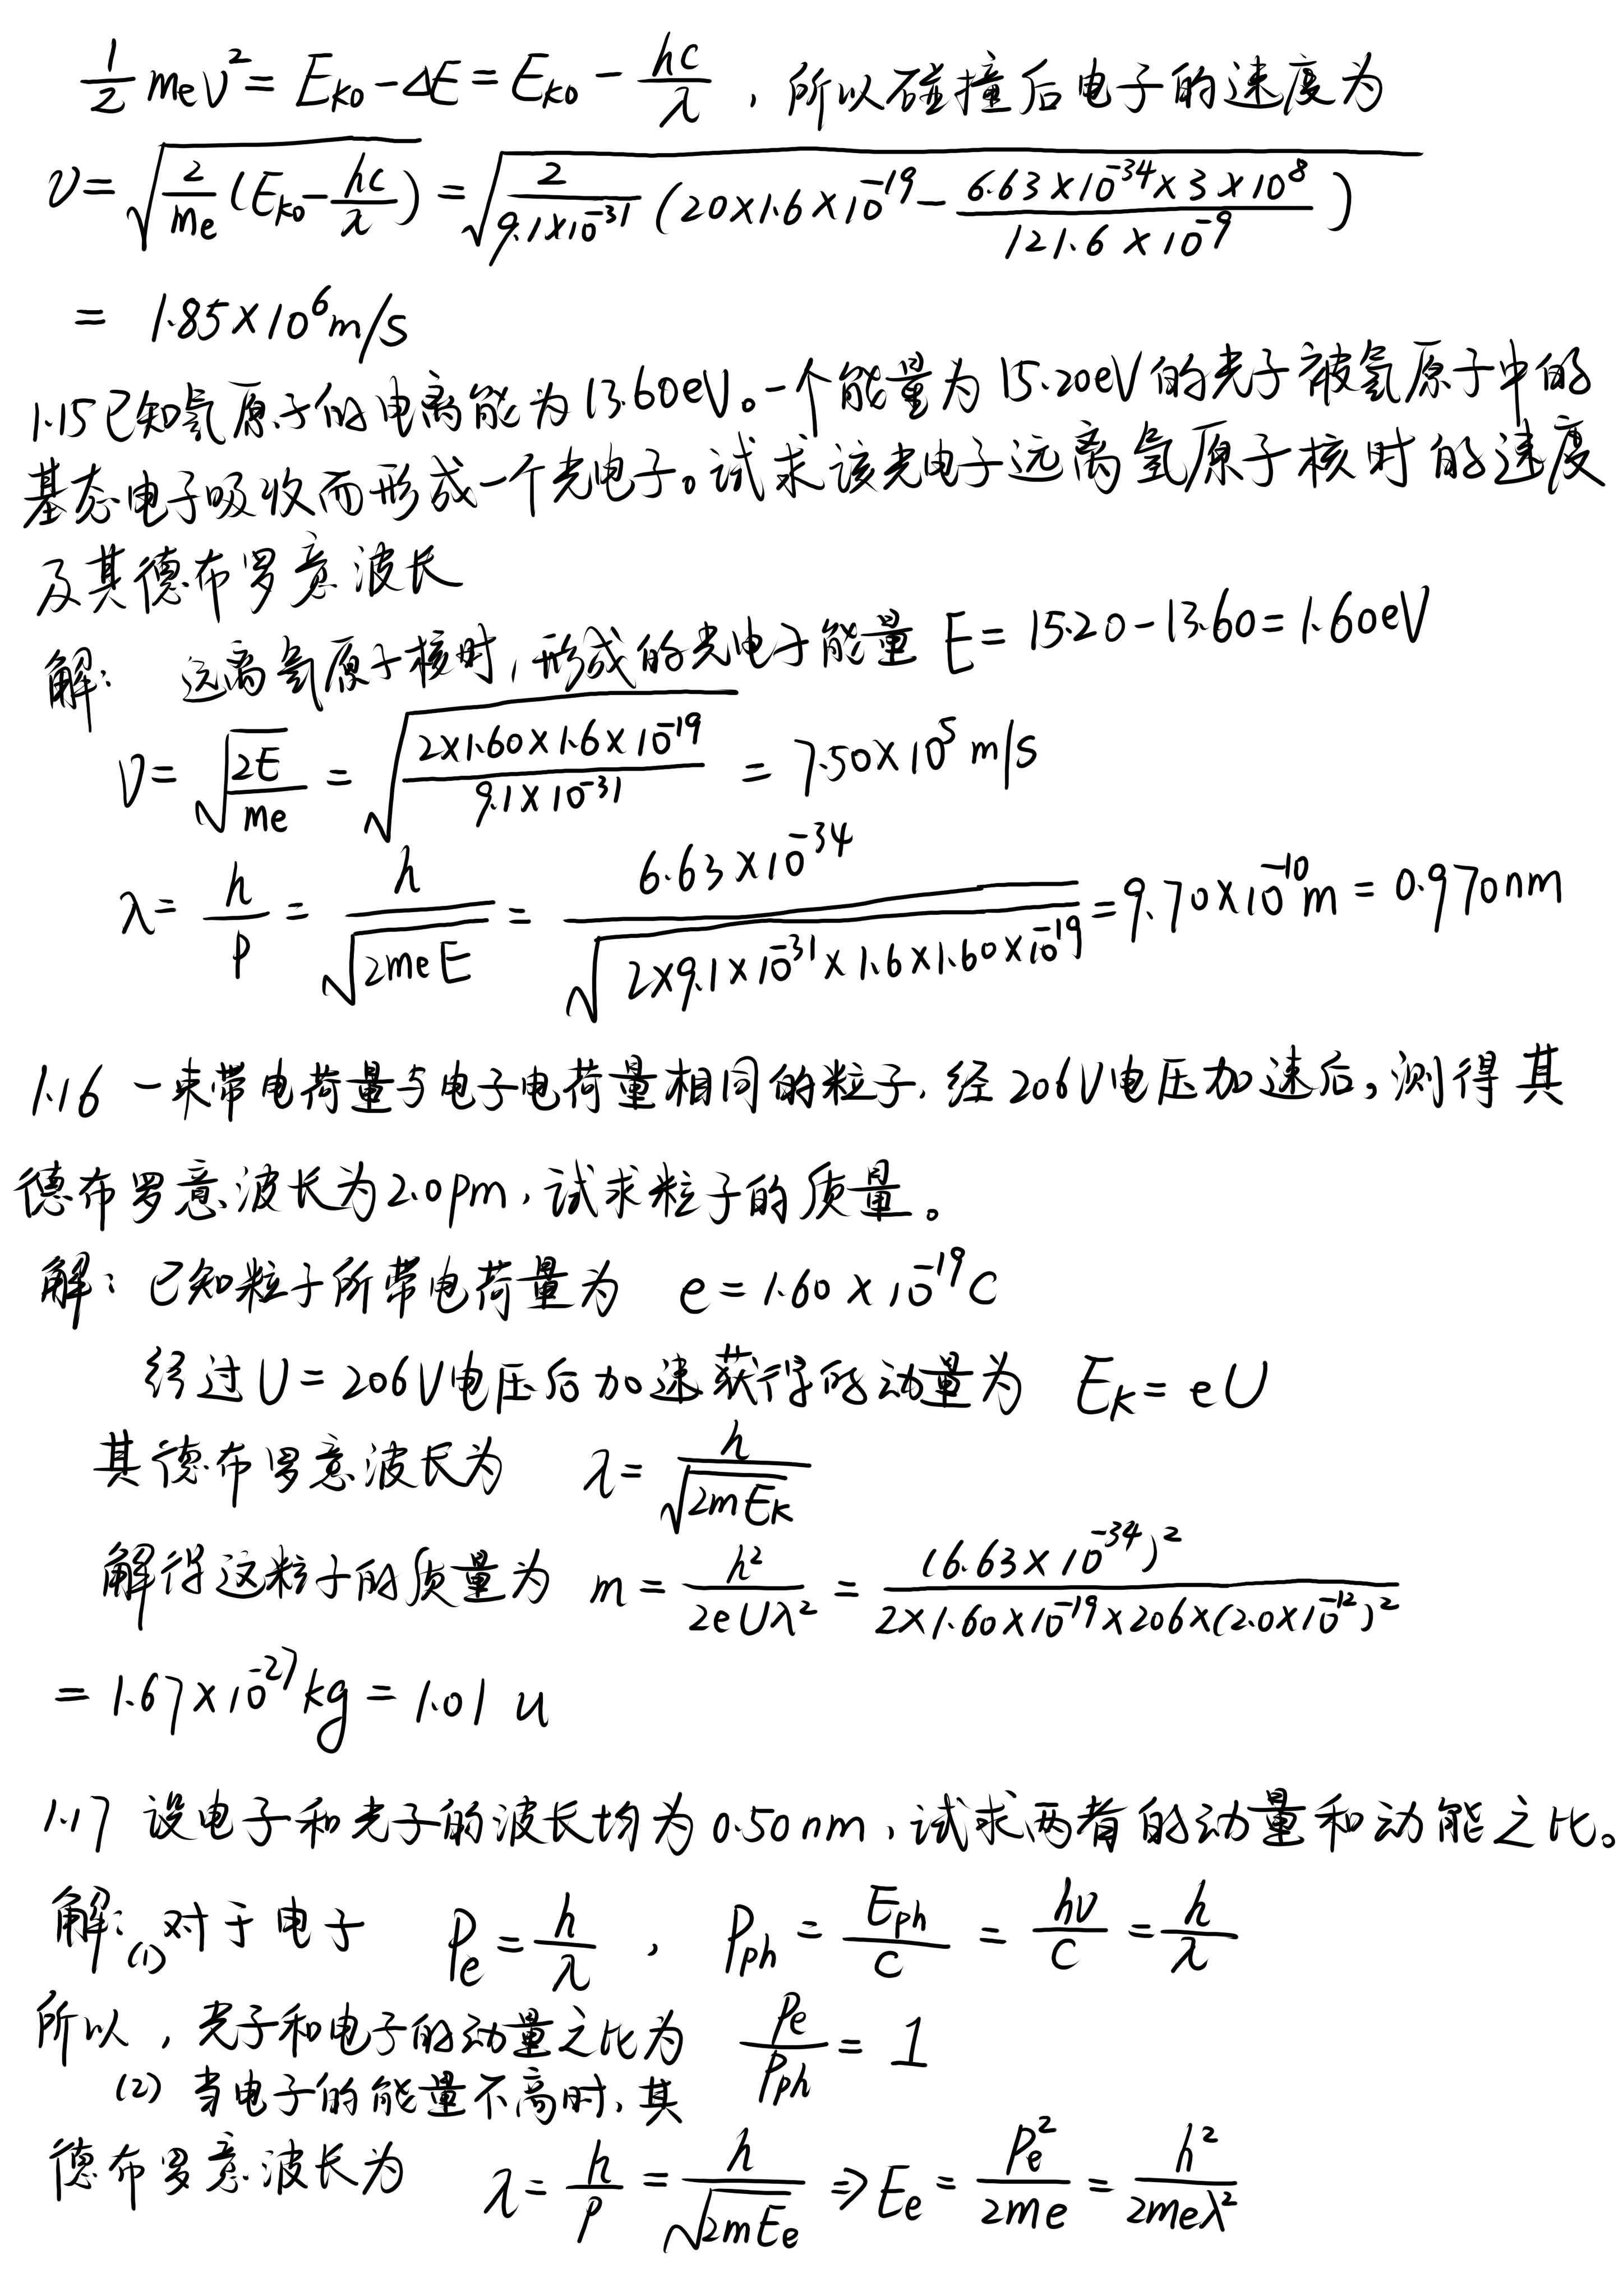 ½ mₑv² = E_{k0} - ΔE = E_{k0} - hc/λ , 所以碰撞后电子的速度为
v = √(2/mₑ (E_{k0} - hc/λ)) = √(2/(9.1×10⁻³¹) (20×1.6×10⁻¹⁹ - (6.63×10⁻³⁴×3×10⁸)/(121.6×10⁻⁹)))
= 1.85×10⁶m/s
1.15已知氢原子的电离能为13.60eV。一个能量为15.20eV的光子被氢原子中的
基态电子吸收而形成一个光电子。试求该光电子远离氢原子核时的速度
及其德布罗意波长
解: 远离氢原子核时,形成的光电子能量 E = 15.20-13.60 = 1.60eV
v = √(2E/mₑ) = √((2×1.60×1.6×10⁻¹⁹)/(9.1×10⁻³¹)) = 7.50×10⁵ m/s
λ = h/p = h/√(2mₑE) = 6.63×10⁻³⁴/√(2×9.1×10⁻³¹×1.6×1.60×10⁻¹⁹) = 9.70×10⁻¹⁰m = 0.970nm
1.16 一束带电荷量与电子电荷量相同的粒子,经206V电压加速后,测得其
德布罗意波长为2.0pm,试求粒子的质量。
解: 已知粒子所带电荷量为 e = 1.60×10⁻¹⁹C
经过U = 206V电压后加速获得的动量为 E_K = eU
其德布罗意波长为 λ = h/√(2mE_K)
解得这粒子的质量为 m = h²/(2eUλ²) = (6.63×10⁻³⁴)²/(2×1.60×10⁻¹⁹×206×(2.0×10⁻¹²)²)
= 1.67×10⁻²⁷kg = 1.01 u
1.17 设电子和光子的波长均为0.50nm,试求两者的动量和动能之比。
解: (1)对于电子 Pₑ = h/λ , P_{ph} = E_{ph}/C = hν/C = h/λ
所以,光子和电子的动量之比为 Pₑ/P_{ph} = 1
(2) 当电子的能量不高时,其
德布罗意波长为 λ = h/p = h/√(2mEₑ) ⇒ Eₑ = Pₑ²/(2mₑ) = h²/(2mₑλ²)